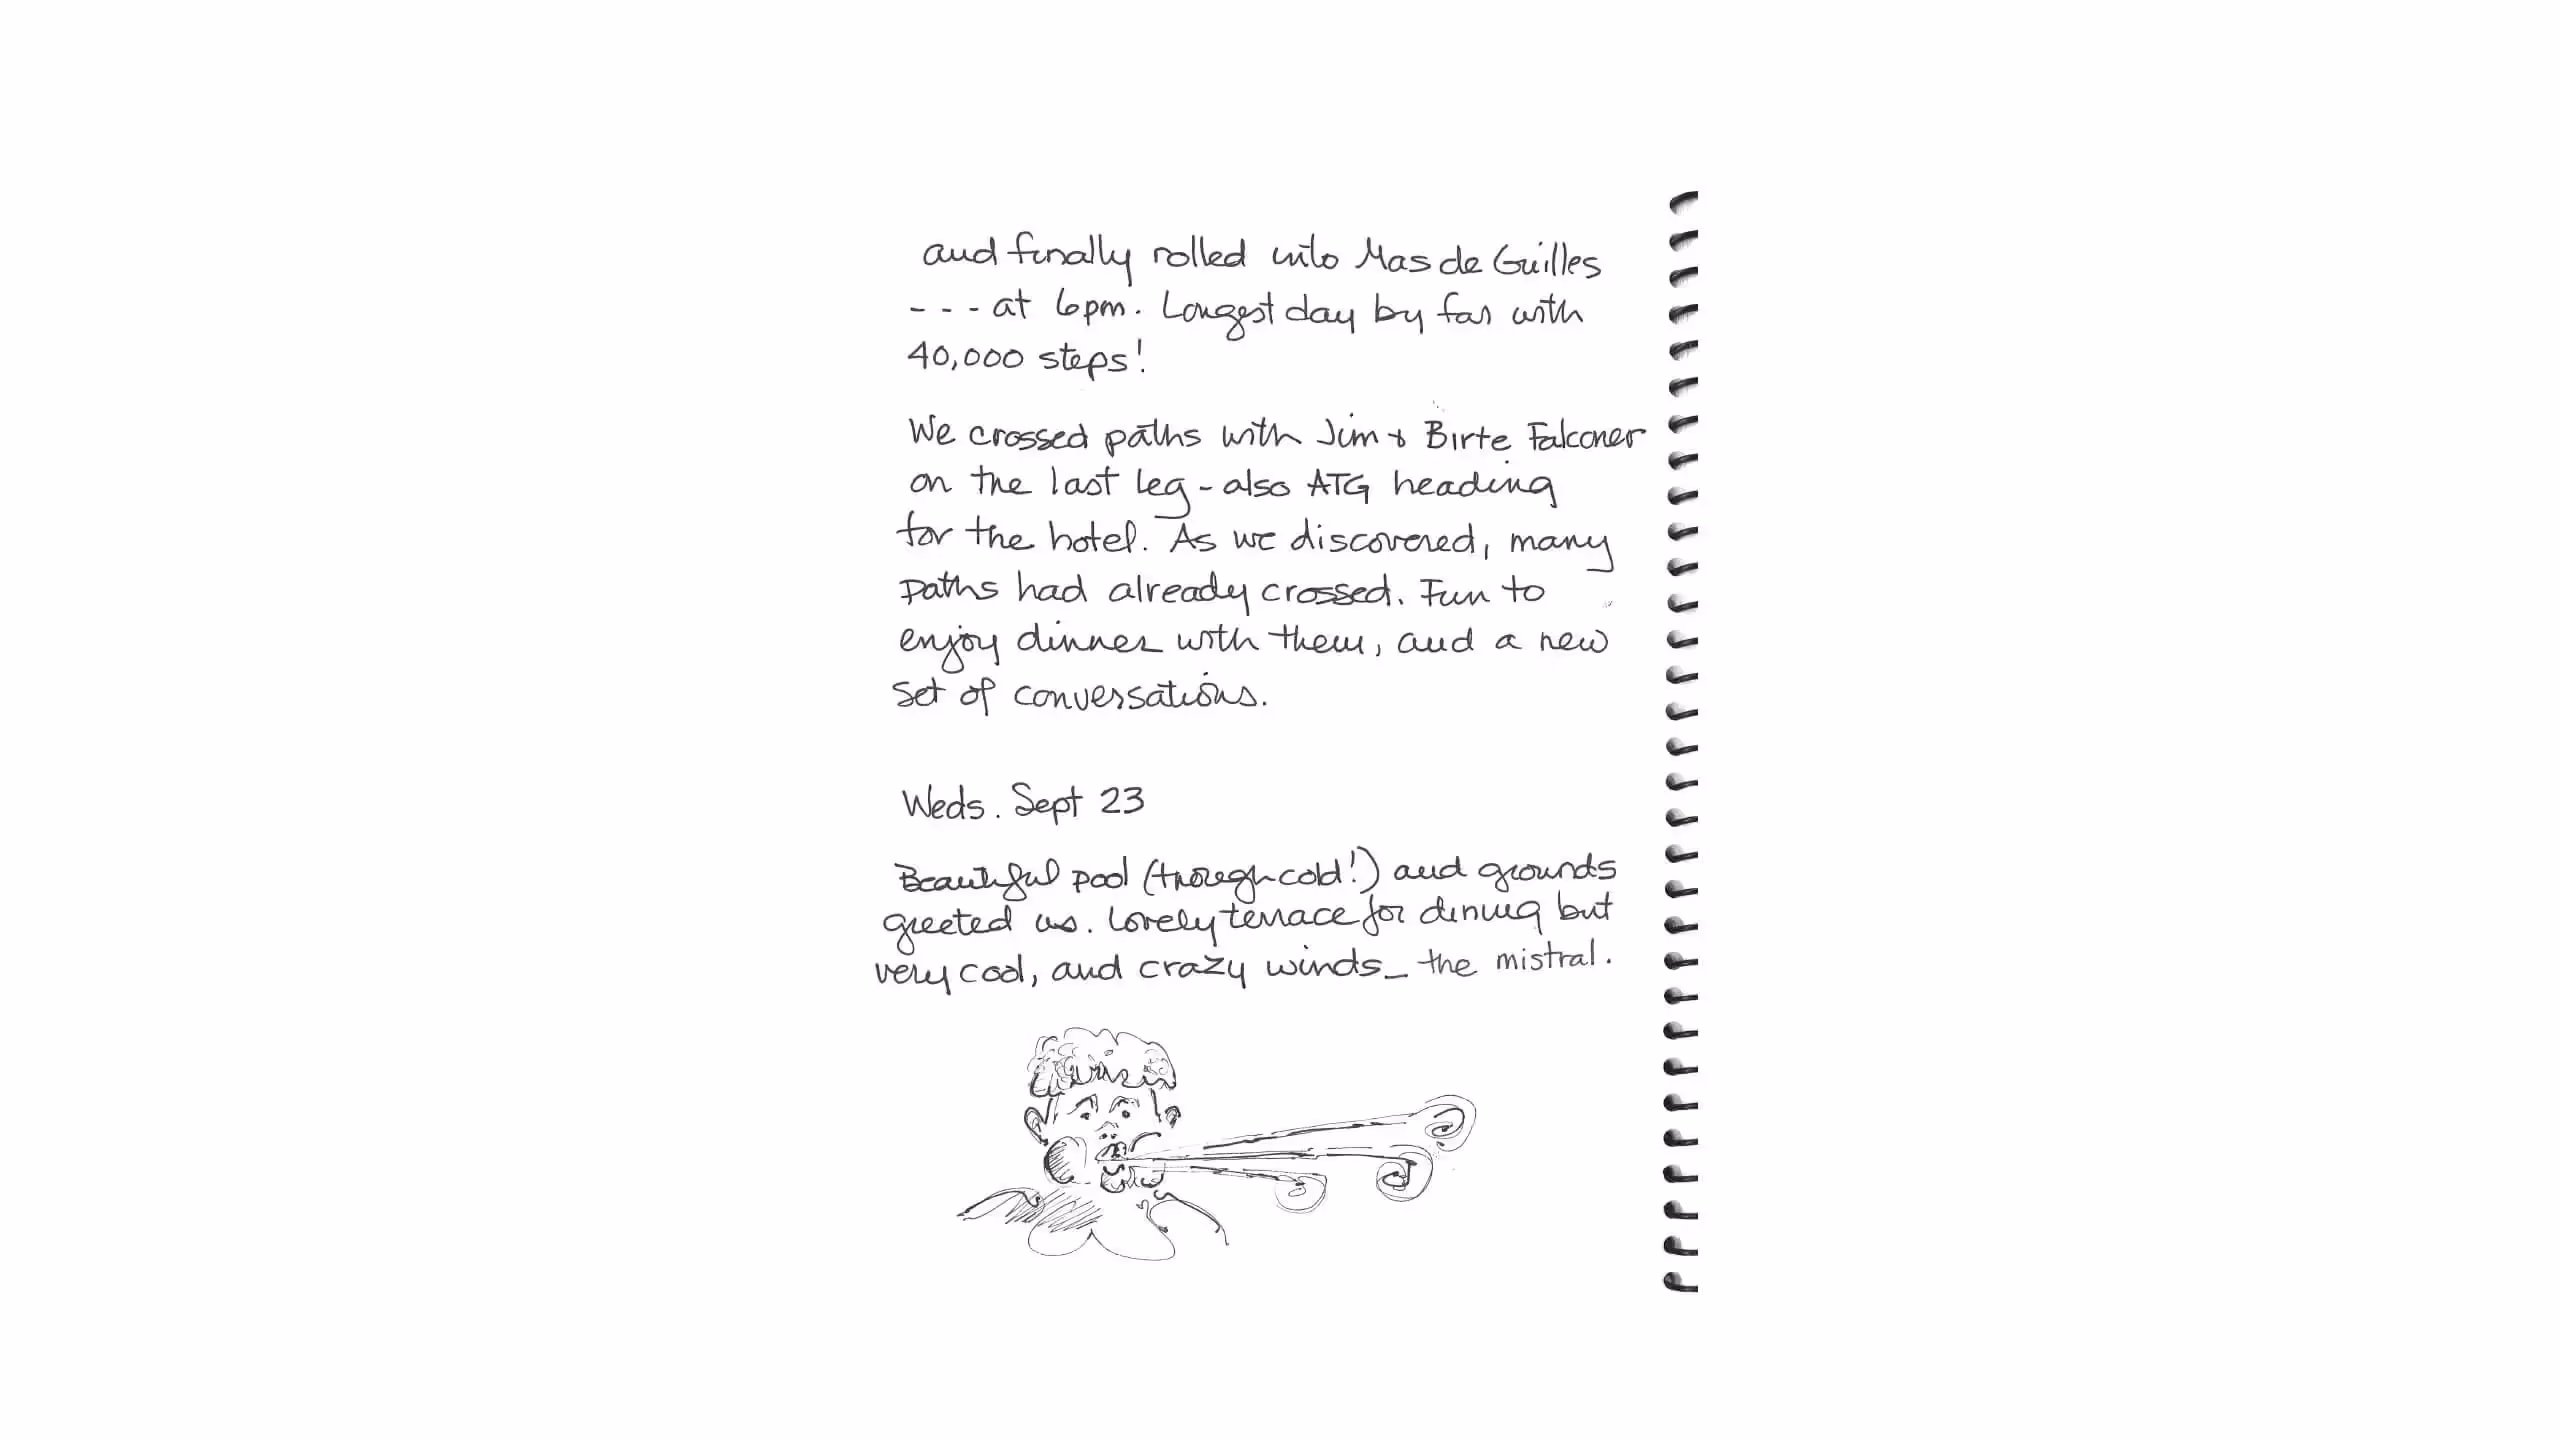 and finally rolled into Mas de Guilles
- - - at 6pm. Longest day by far with
40,000 steps!
We crossed paths with Jim + Birte Falconer
on the last leg - also ATG heading
for the hotel. As we discovered, many
paths had already crossed. Fun to
enjoy dinner with them, and a new
set of conversations.
Weds. Sept 23
Beautiful pool (though cold!) and grounds
greeted us. Lovely terrace for dining but
very cool, and crazy winds_ the mistral.